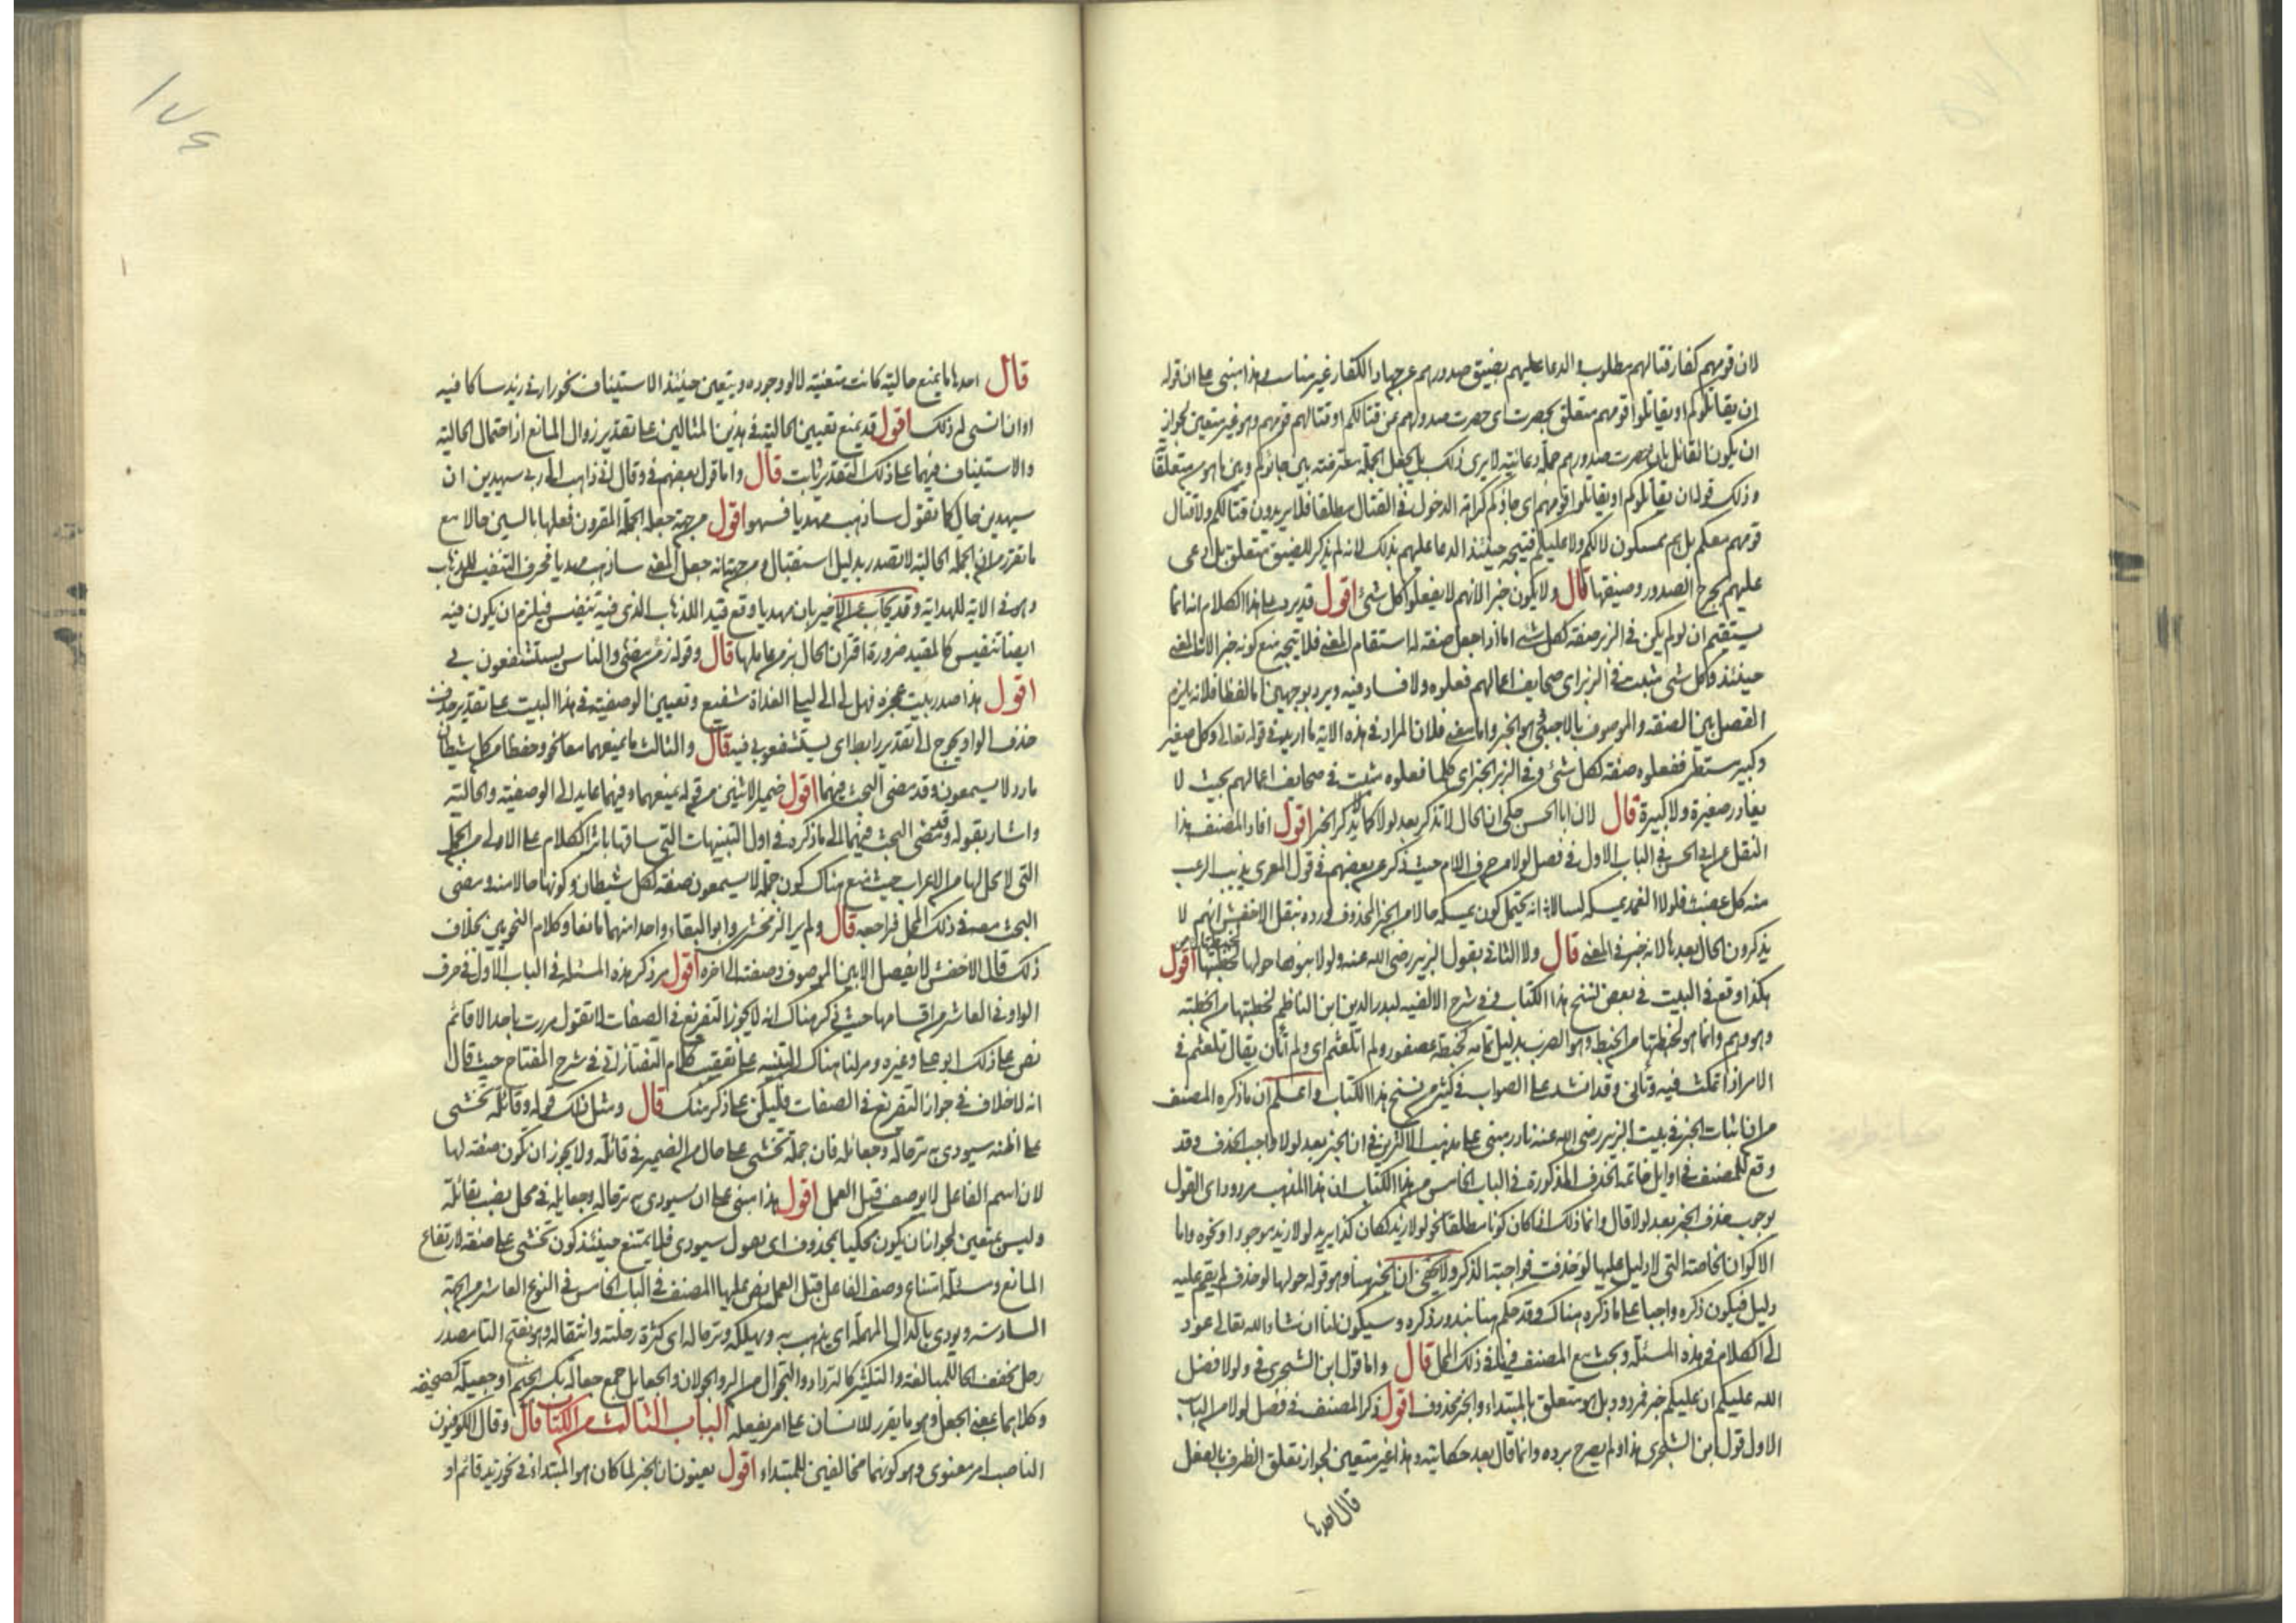 لان قومهم كفار قتالهم مطلوب والدعا عليهم بضيق صدورهم عن جهاد الكفار غير مناسب وهذا مبنى على ان قوله
ان يقاتلوكم او يقاتلوا قومهم متعلق بحصرت اى حصرت صدورهم عن قتالكم او قتالهم قومهم وهو غير متعين لجواز
ان يكون القائل بان حصرت صدورهم جملة دعائيته لا يرى ذلك بل يجعل الجملة معترضة بين جاؤكم وبين ما هو متعلقا
وذلك قوله ان يقاتلوكم او يقاتلوا قومهم اى جاؤكم كراهة الدخول فى القتال مطلقا فلا يريدون قتالكم ولا قتال
قومهم معكم بل هم ممسكون لا لكم ولا عليكم فيتجه حينئذ الدعا عليهم بذلك لانه لم يذكر للضيق متعلق بل دعى
عليهم بحرج الصدور وضيقها قال ولا يكون خبرا لانهم لا يفعلوا كل شئ اقول قد يرد على هذا الكلام انه انما
يستقيم ان لو لم يكن فى الزبر صفة لكل شئ اما اذا جعل صفة له استقام المعنى فلا يتجه منع كونه خبرا لان المعنى
حينئذ وكل شئ مثبت فى الزبر اى صحايف اعمالهم فعلوه ولا فساد فيه ويرد بوجهين اما لفظا فلانه يلزم
الفصل بين الصفة والموصوف بالاجنبى وهو الخبر واما معنى فلان المراد فى هذه الاية ما اريد فى قوله تعالى وكل صغير
وكبير مستطر ففعلوه صفة لكل شئ وفى الزبر الخبر اى كلما فعلوه مثبت فى صحايف اعمالهم بحيث لا
يغادر صغيرة ولا كبيرة قال لان ابا الحسن حكى ان الحال لا تذكر بعد لولا كما لا يذكر الخبر اقول افاد المصنف هذا
النقل عن ابى الحسن فى الباب الاول فى فصل لولا من حرف اللام حيث ذكر عن بعضهم فى قول المعرى يذيب الرعب
منه كل عضب فلولا الغمد يمسكه لسالا انه يحتمل كون يمسكه حالا من الخبر المحذوف ورده بنقل الاخفش انهم لا
يذكرون الحال بعدها لانه خبر فى المعنى قال ولا الثانى بقول الزبير رضى الله عنه ولولا بنوها حولها لخطبتها اقول
هكذا وقع فى البيت فى بعض نسخ هذا الكتاب وفى شرح الالفيه لبدر الدين ابن الناظم لخطبتها من الخطبة
وهو وهم وانما هو لخبطتها من الخبط وهو الضرب بدليل تمامه كخبطة عصفور ولم اتلعثم اى ولم اتأن يقال تلعثم فى
الامر اذا تمكث فيه وتأنى وقد انشد على الصواب فى كثير من نسخ هذا الكتاب واعلم ان ما ذكره المصنف
من ان اثبات الخبر فى بيت الزبير رضى الله عنه نادر مبنى على مذهب الاكثرين فى ان الخبر بعد لولا واجب الحذف وقد
وقع للمصنف فى اوايل خاتمه الحذف المذكورة فى الباب الخامس من هذا الكتاب ان هذا المذهب مردود اى القول
بوجوب حذف الخبر بعد لولا قال وانما ذلك اذا كان كونا مطلقا نحو لولا زيد لكان كذا يريد لولا زيد موجود او نحوه واما
الاكوان الخاصة التى لا دليل عليها لو حذفت فواجبة الذكر ولا يخفى ان الخبر هنا وهو قوله حولها لو حذف لم يقم عليه
دليل فيكون ذكره واجبا على ما ذكره هناك وقد حكم هنا بندور ذكره وسيكون لنا ان شاء الله تعالى عود
الى الكلام فى هذه المسئلة وبحث مع المصنف فيها فى ذلك المحل قال واما قول ابن الشجرى فى ولولا فضل
الله عليكم ان عليكم خبر فمردود بل هو متعلق بالمبتداء والخبر محذوف اقول ذكر المصنف فى فصل لولا من الباب
الاول قول ابن الشجرى هذا ولم يصرح برده وانما قال بعد حكايته وهذا غير متعين لجواز تعلق الظرف بالفعل
قال احدها
١٧٤
قال احدها ما يمنع حاليته كانت متعنيته لولا وجوده ويتعين حينئذ الاستيناف نحو زارنى زيد ساكافيه
او ان انسى له ذلك اقول قد يمنع تعيين الحالية فى هذين المثالين على تقدير زوال المانع اذ احتمال الحالية
والاستيناف فيهما على ذلك التقدير ثابت قال واما قول بعضهم فى وقال انى ذاهب الى ربى سيهدين ان
سيهدين حال كما تقول ساذهب مهديا فسهو اقول من جهة جعله الجملة المقرون فعلها بالسين حالا مع
ما تقرر من ان الجملة الحالية لا تصدر بدليل استقبال ومن جهة انه جعل المعنى ساذهب مهديا فحرف التنفيس للذهاب
وهو فى الاية للهداية وقد يجاب عن الاخير بان مهديا وقع قيد اللذهاب الذى فيه تنفيس فيلزم ان يكون فيه
ايضا تنفيس كالمقيد ضرورة اقتران الحال بزمن عاملها قال وقوله زمن مضى والناس يستشفعون بى
اقول هذا صدر بيت عجزه فهل لى الى ليلى الغداة شفيع وتعيين الوصفية فى هذا البيت على تقدير حذف
حذف الواو يحوج الى تقدير رابط اى يستشفعوبى فيه قال والثالث ما يمنعهما معا نحو وحفظا من كل شيطان
مارد لا يسمعون وقد مضى البحث فيهما اقول ضمير الاثنين من قوله يمنعهما وفيهما عايد الى الوصفية والحالية
واشار بقوله وقد مضى البحث فيهما الى ما ذكره فى اول التنبيهات التى ساقها باثر الكلام على الاولى من الجمل
التى لا محل لها من الاعراب حيث منع هناك كون جملة لا يسمعون صفة لكل شيطان وكونها حالا منه ومضى
البحث معه فى ذلك المحل فراجعه قال ولم ير الزمخشرى وابو البقاء واحدا منهما مانعا وكلام النحويين بخلاف
ذلك قال الاخفش لا يفصل الا بين الموصوف وصفته الى اخره اقول مر ذكر هذه المسئلة فى الباب الاول فى حرف
الواو فى العاشر من اقسامها حيث ذكر هناك انه لا يجوز التفريغ فى الصفات لا تقول مررت باحد الا قائم
نص على ذلك ابو على وغيره ومر لنا هناك التنبيه على تعقيب كلام التفتازانى فى شرح المفتاح حيث قال
انه لا خلاف فى جواز التفريغ فى الصفات فليكن على ذكر منك قال ومثل ذلك قوله وقائلة تخشى
على اظنه سيودى به ترحاله وجعائله فان جملة تخشى على حال من الضمير فى قائلة ولا يجوز ان تكون صفة لها
لان اسم الفاعل لا يوصف قبل العمل اقول هذا مبنى على ان سيودى به ترحاله وجعايله فى محل نصب بقائلة
وليس بمتعين لجواز ان يكون محكيا بمحذوف اى يقول سيودى فلا يمتنع حينئذ كون تخشى على صفة لارتفاع
المانع ومسئلة امتناع وصف الفاعل قبل العمل نص عليها المصنف فى الباب الخامس فى النوع العاشر من الجهة
السادسة ويودى بالدال المهملة اى يذهب به ويهلكه وترحاله اى كثرة رحلته وانتقاله وهو بفتح التا مصدر
رحل مخفف الحا للمبالغة والتكثير كالترداد والتجوال من الرد والجولان والجعايل جمع جعالة بكسر الجيم او جعيلة كصحيفه
وكلاهما بمعنى الجعل وهو ما يقرر للانسان على امر يفعله الباب الثالث من الكتاب قال وقال الكوفيون
الناصب امر معنوى وهو كونهما مخالفين للمبتداء اقول يعنون ان الخبر لما كان هو المبتداء فى نحو زيد قائم او